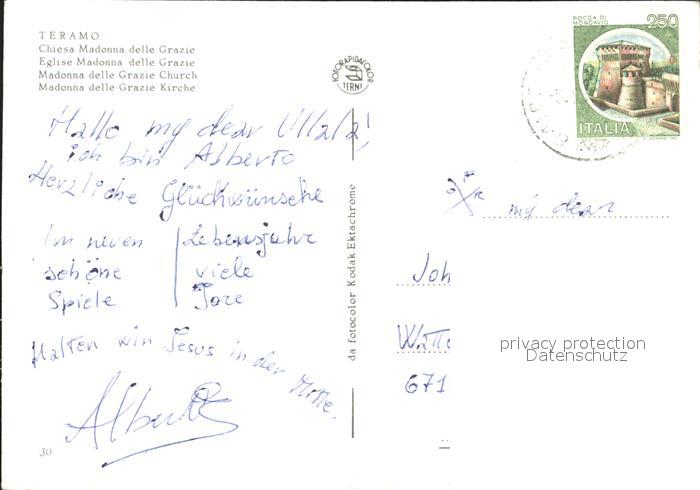 TERAMO
Chiesa Madonna delle Grazie
Eglise Madonna delle Grazie
Madonna delle Grazie Church
Madonna delle Grazie Kirche
FOTORAPIDACOLOR
TERNI
ROCCA DI
MONDAVIO
250
ITALIA
Hallo my dear
ich bin Alberto
Herzliche Glückwünsche
Im neuen Lebensjahre
schöne viele
Spiele Tore
Halten wir Jesus in der Mitte.
Alberto
da fotocolor Kodak Ektachrome
my dear
Joh
Watte
671
privacy protection
Datenschutz
30